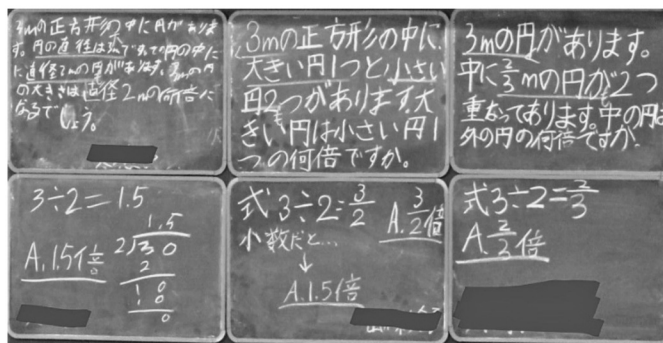 3mの正方形の中に円がありま
す。円の直径は3mで3mの円の中に
に直径2mの円があります。3mの円
の大きさは直径2mの何倍に
なるでしょう。
3mの正方形の中に、
大きい円1つと小さい
円2つがあります。大
きい円は小さい円1
つの何倍ですか。
3mの円があります。
中に2/3mの円が2つ
重なってあります。中の円は
外の円の何倍ですか。
3÷2=1.5
A.1.5倍
1.5
2)3 0
2
1 0
1 0
0
式 3÷2=3/2
A. 3/2倍
小数だと…
↓
A.1.5倍
式3÷2=2/3
A. 2/3倍